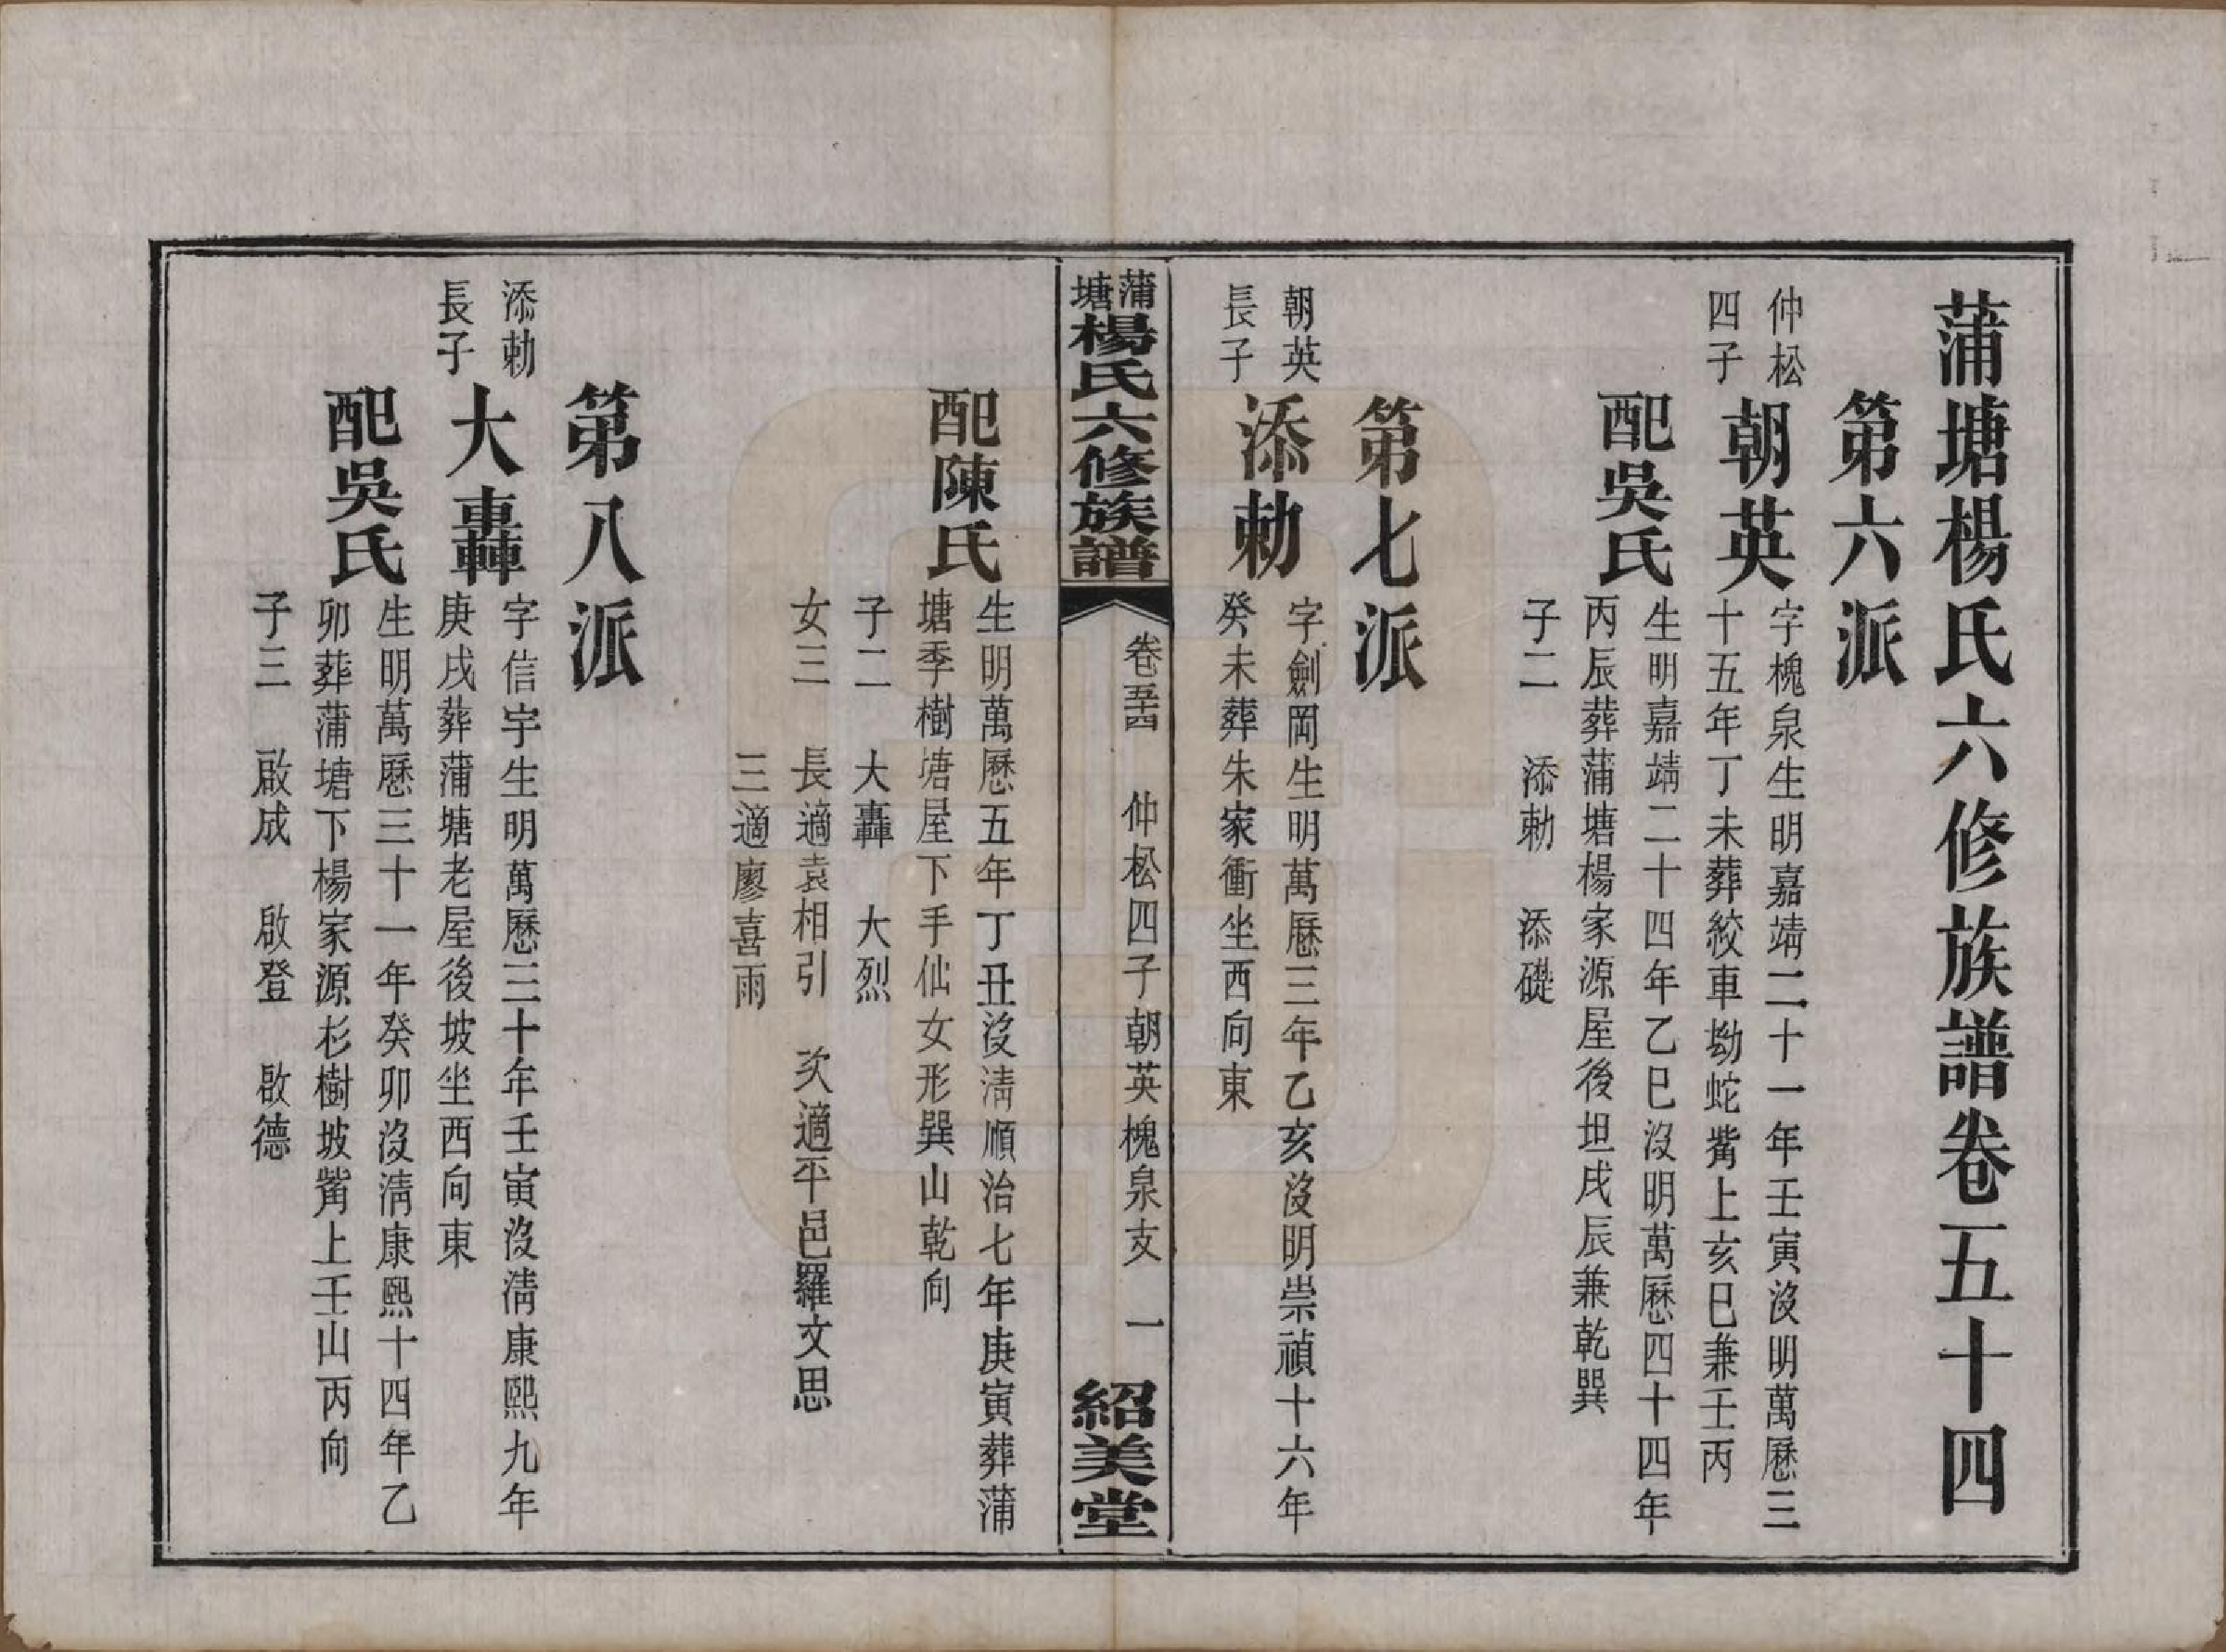 蒲塘楊氏六修族譜卷五十四
第六派
仲松
四子
朝英
字槐泉生明嘉靖二十一年壬寅沒明萬曆三
十五年丁未葬絞車坳蛇觜上亥巳兼壬丙
配吳氏
生明嘉靖二十四年乙巳沒明萬曆四十四年
丙辰葬蒲塘楊家源屋後坦戌辰兼乾巽
子二 添勅 添礎
第七派
朝英
長子
添勅
字劍岡生明萬曆三年乙亥沒明崇禎十六年
癸未葬朱家衝坐西向東
蒲塘楊氏六修族譜
卷五十四 仲松四子朝英槐泉支 一
紹美堂
配陳氏
生明萬曆五年丁丑沒清順治七年庚寅葬蒲
塘季樹塘屋下手仙女形巽山乾向
子二 大轟 大烈
女三 長適袁相引 次適平邑羅文思
三適廖喜雨
第八派
添勅
長子
大轟
字信宇生明萬曆三十年壬寅沒清康熙九年
庚戌葬蒲塘老屋後坡坐西向東
配吳氏
生明萬曆三十一年癸卯沒清康熙十四年乙
卯葬蒲塘下楊家源杉樹坡觜上壬山丙向
子三 啟成 啟登 啟德